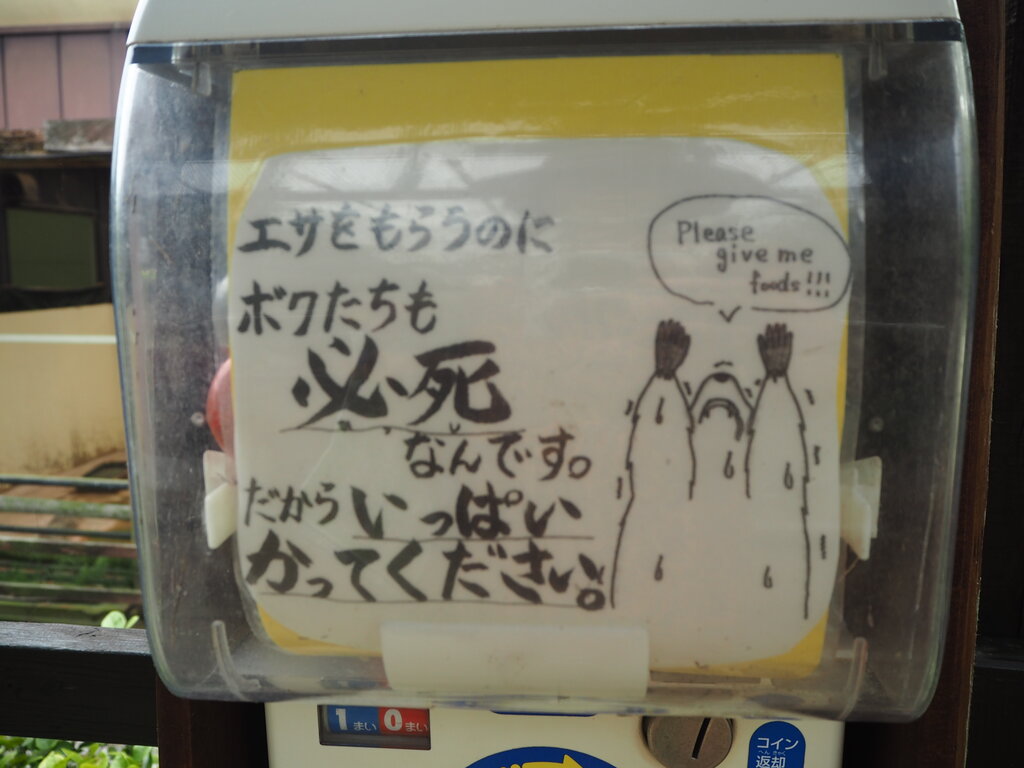 エサをもらうのに
ボクたちも
必死
なんです。
だから いっぱい
かってください。
Please
give me
foods!!!
1まい 0まい
コイン
へんきゃく
返却